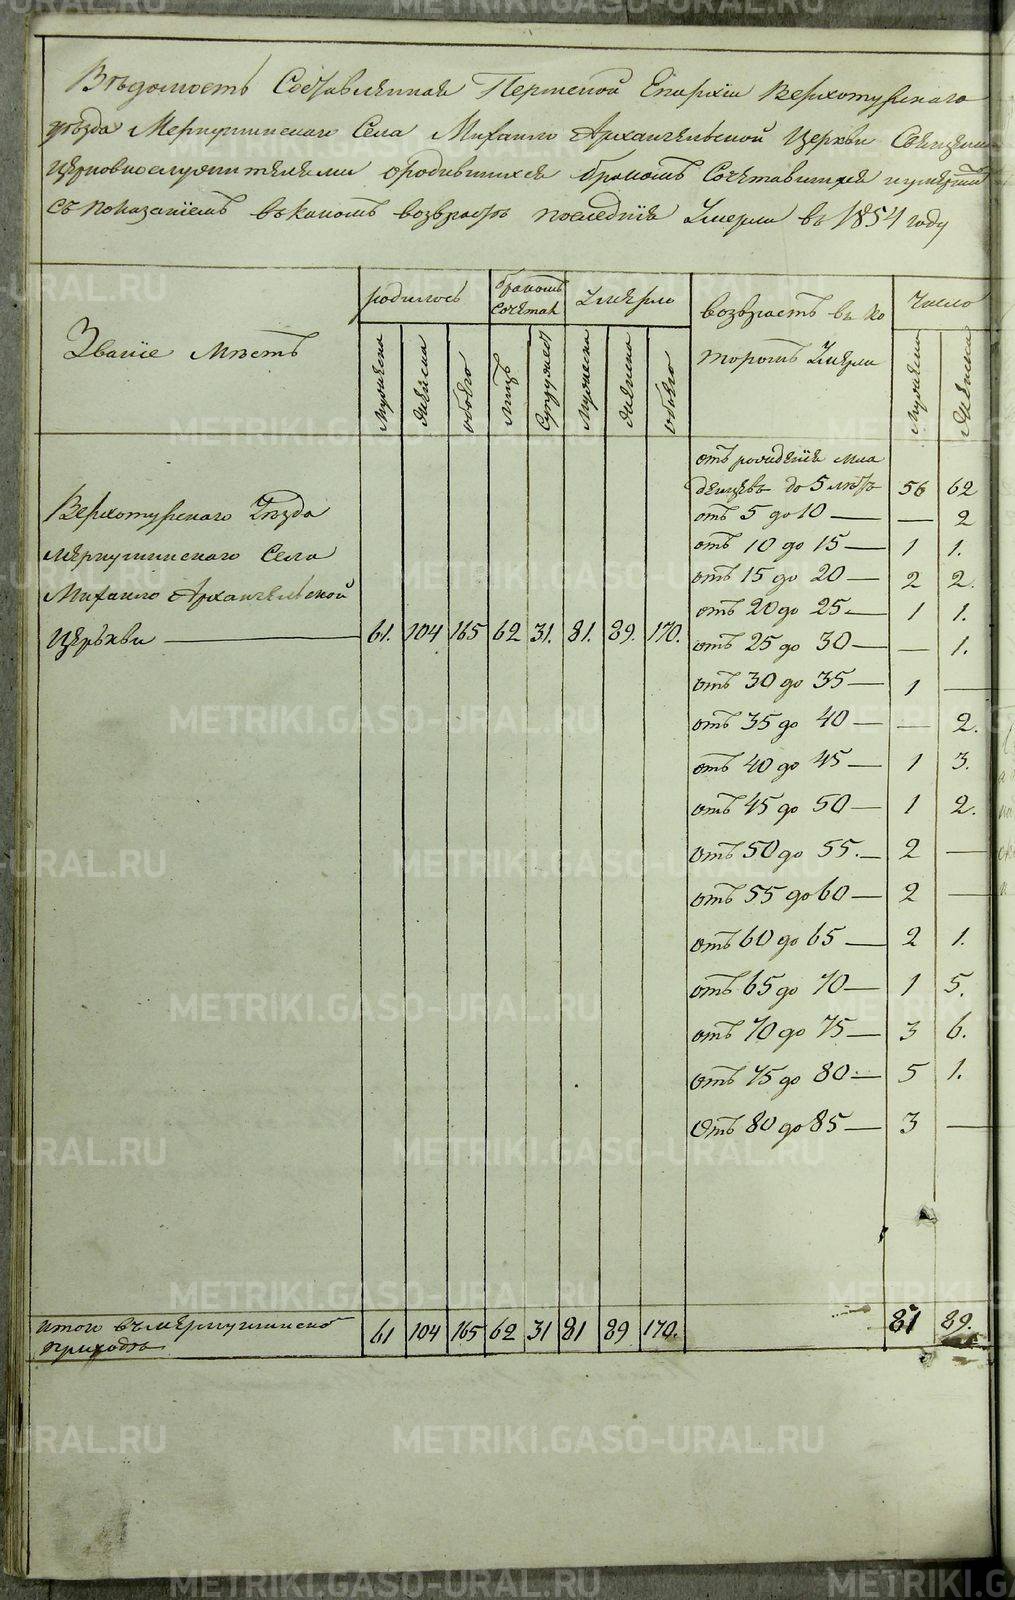 Вѣдомость Составленная Пермской Епархіи Верхотурскаго
уѣзда Меркушинскаго Села Михаило Архангельской Церкви Священно
церковнослужителями о родившихся бракомъ Сочетавшихся и умершихъ
съ показаніемъ въ какомъ возврастѣ последніе Умерли въ 1854 году
Званіе Мѣстъ
родилось
бракомъ Сочетал
Умерло
возврастъ въ ко
торомъ Умерли
Число
Мужеска
Женска
обоего
Лицъ
Супружест
Мужеска
Женска
обоего
Мужеска
Женска
Верхотурскаго Уѣзда
Меркушинскаго Села
Михаило Архангельской
Церькви 61. 104 165 62 31. 81. 89. 170.
отъ рожденія мла
денцевъ до 5 лѣтъ 56 62
отъ 5 до 10 — — 2
отъ 10 до 15 — 1 1.
отъ 15 до 20 — 2 2.
отъ 20 до 25. — 1 1.
отъ 25 до 30 — — 1.
отъ 30 до 35 — 1 —
отъ 35 до 40 — — 2.
отъ 40 до 45 — 1 3.
отъ 45 до 50 — 1 2.
отъ 50 до 55. — 2 —
отъ 55 до 60 — 2 —
отъ 60 до 65 — 2 1.
отъ 65 до 70 — 1 5.
отъ 70 до 75 — 3 6.
отъ 75 до 80 — 5 1.
Отъ 80 до 85 — 3 —
итого въ меркушинско
приходѣ 61 104 165 62 31 81 89 170. 81 89.
METRIKI.GASO-URAL.RU